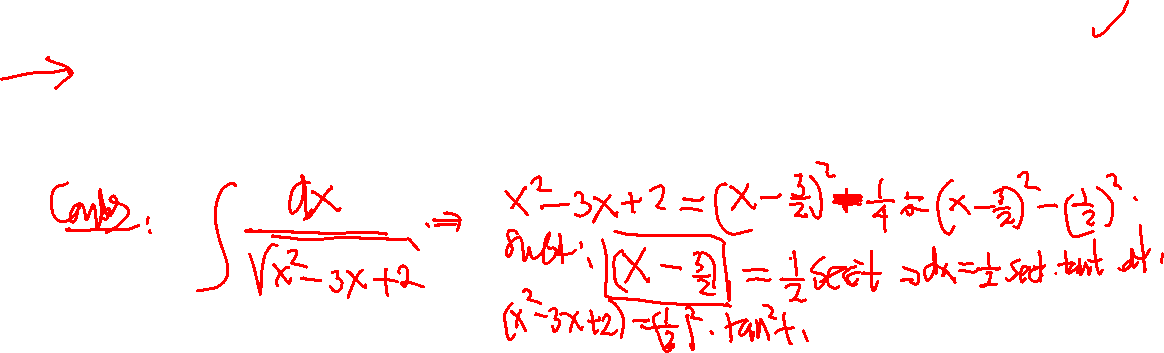 ∫ dx / √(x² − 3x + 2) ⇒ x² − 3x + 2 = (x − 3/2)² − 1/4 = (x − 3/2)² − (1/2)².
subst: (x − 3/2) = 1/2 sect ⇒ dx = 1/2 sect · tant dt.
(x² − 3x + 2) = (1/2)² · tan²t.